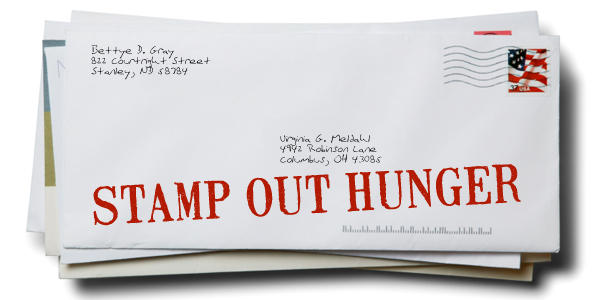 Bettye D. Gray
822 Courtright Street
Stanley, ND 58784
37 USA
Virginia G. Meldahl
4942 Robinson Lane
Columbus, OH 43085
STAMP OUT HUNGER